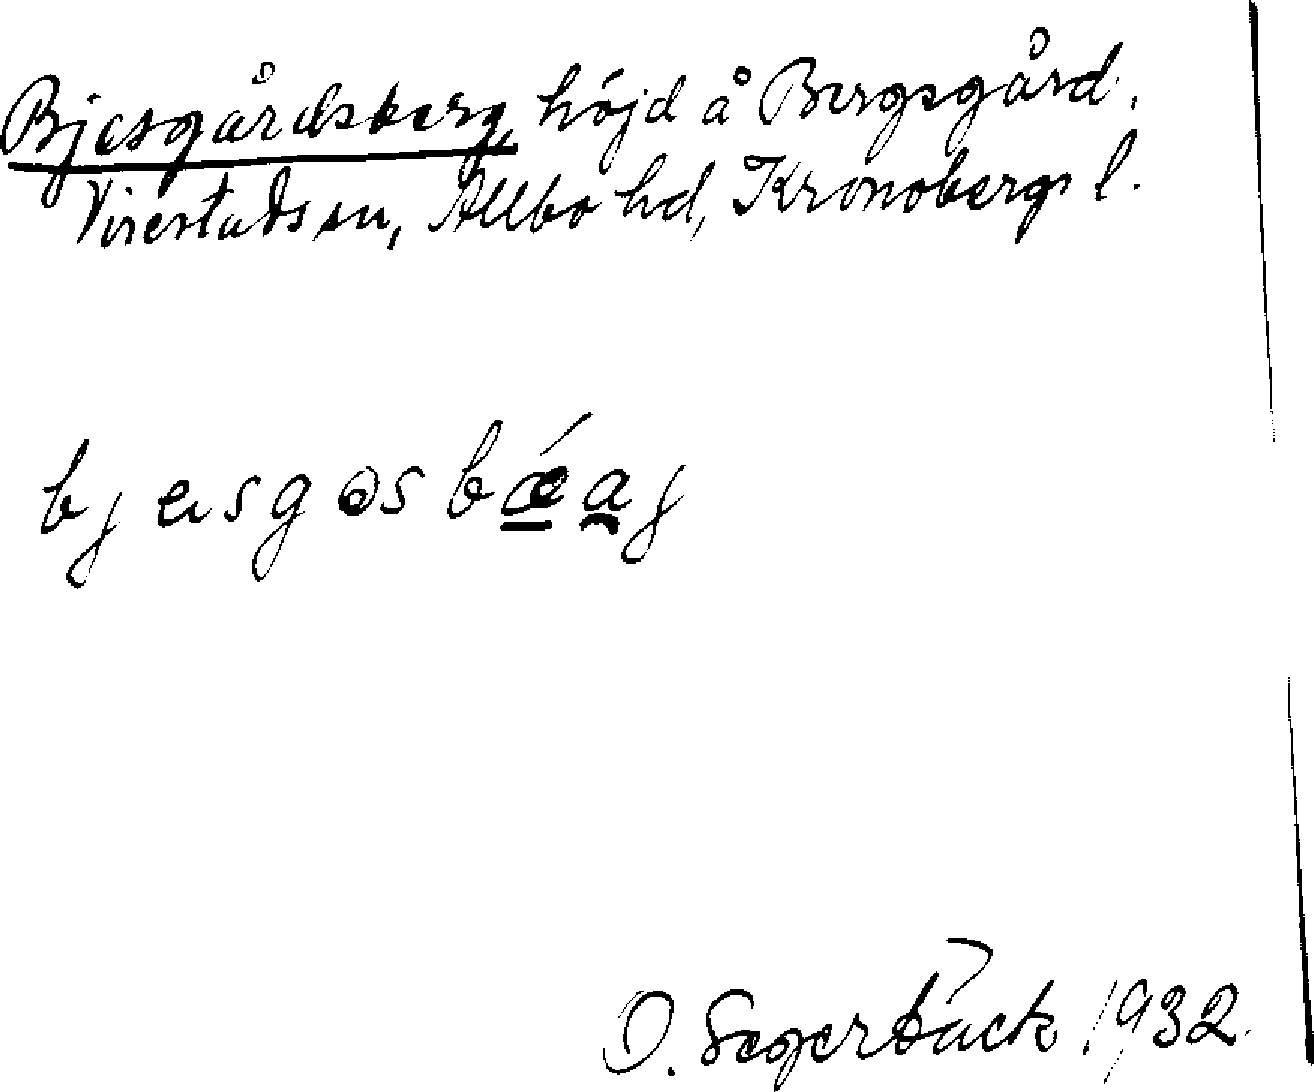 Bjesgårdsberg, höjd å Bergsgård,
Virestads sn, Allbo hd, Kronobergs l.
bjesgɷsbǽaj
O. Segerbäck 1932.